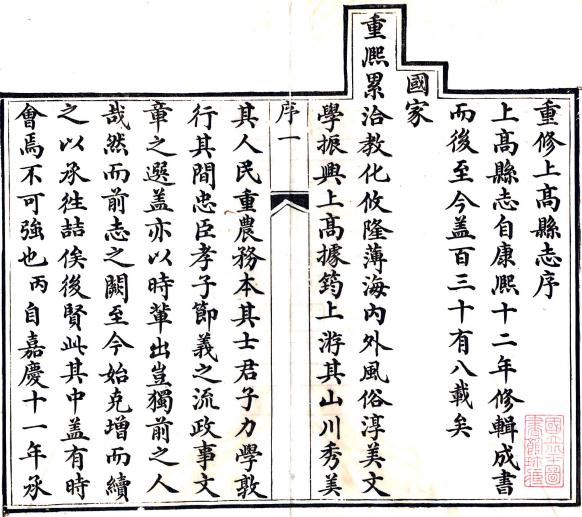 重修上高縣志序
上高縣志自康熙十二年修輯成書
而後至今盖百三十有八載矣
國家
重熙累洽教化攸隆薄海內外風俗淳美文
學振興上高據筠上游其山川秀美
序一
其人民重農務本其士君子力學敦
行其間忠臣孝子節義之流政事文
章之選盖亦以時輩出豈獨前之人
哉然而前志之闕至今始克增而續
之以承徃喆俟後賢此其中盖有時
會焉不可強也丙自嘉慶十一年承